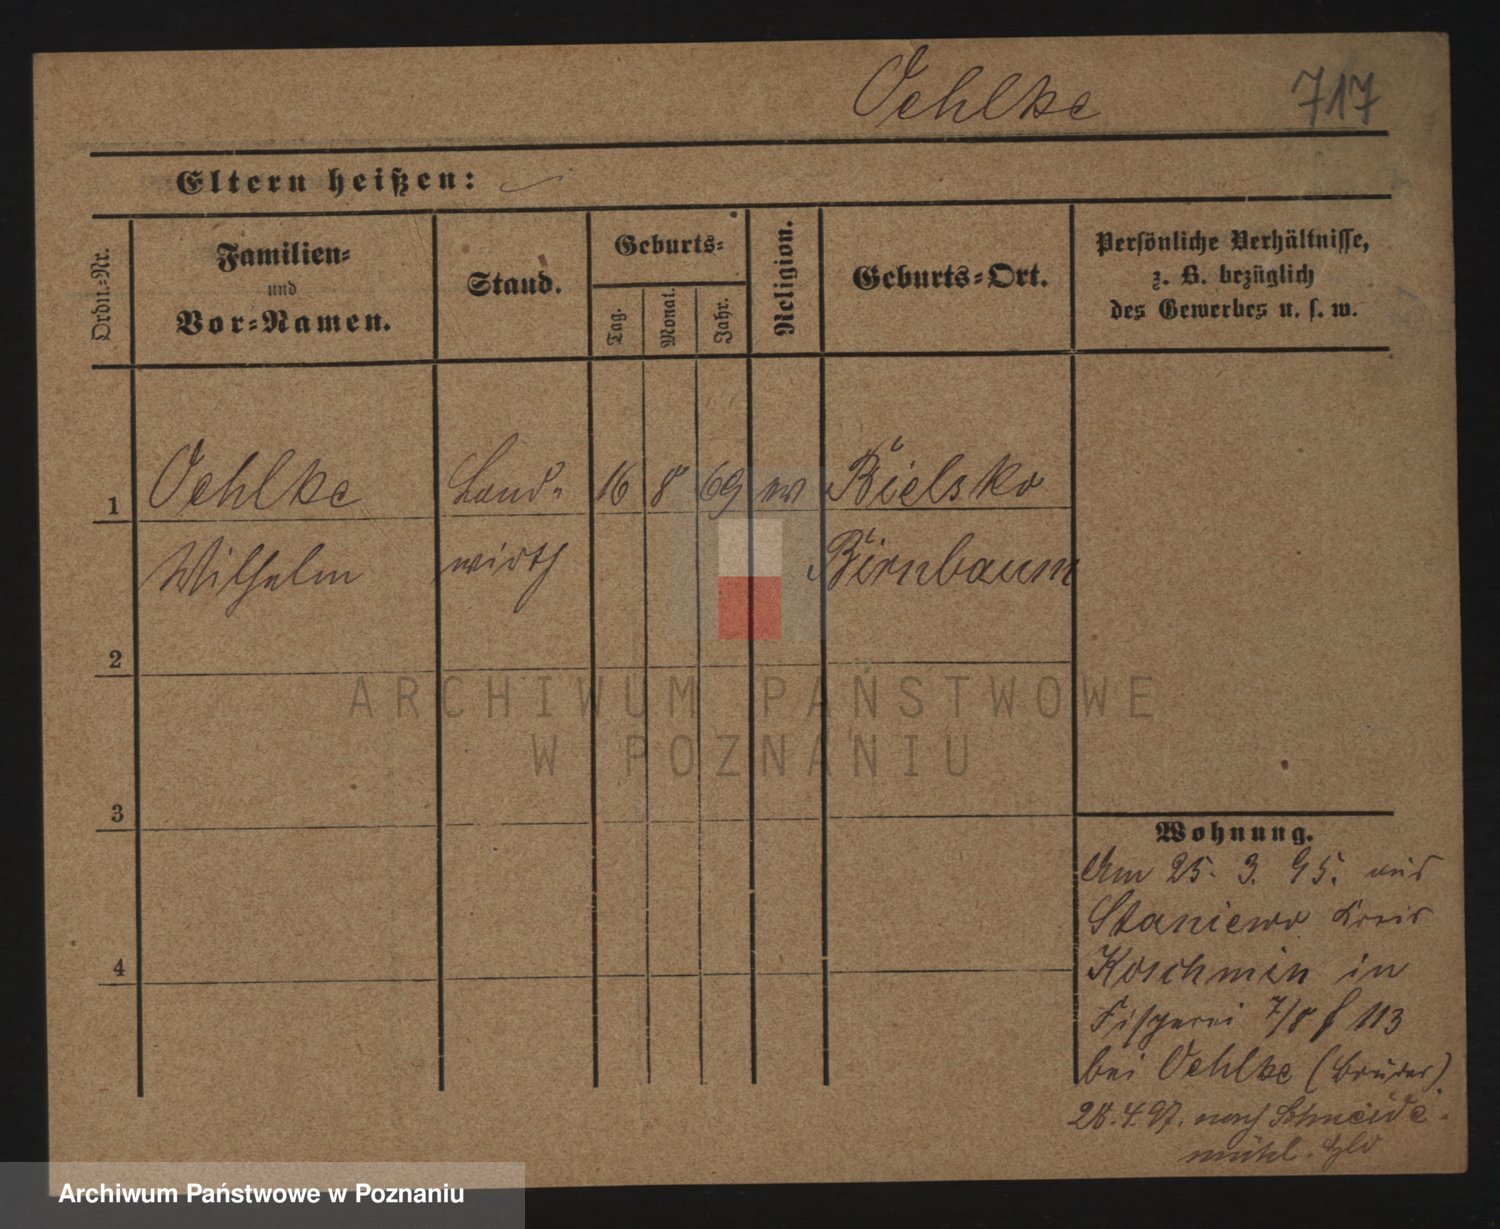 Oehlke
717
Eltern heißen:
Ordn.-Nr.
Familien-
und
Vor-Namen.
Stand.
Geburts-
Tag.
Monat.
Jahr.
Religion.
Geburts-Ort.
Persönliche Verhältnisse,
z. B. bezüglich
des Gewerbes u. s. w.
1
Oehlke
Land-
16
8
69
ev
Bielsko
Wilhelm
wirth
Birnbaum
2
ARCHIWUM PAŃSTWOWE
W POZNANIU
3
Wohnung.
Am 25. 3. 95. aus
Staniewo Kreis
4
Koschmin in
Fischerei 7/8 113
bei Oehlke (Bruder)
28.4.97. nach Schneide-
mühl.
Archiwum Państwowe w Poznaniu